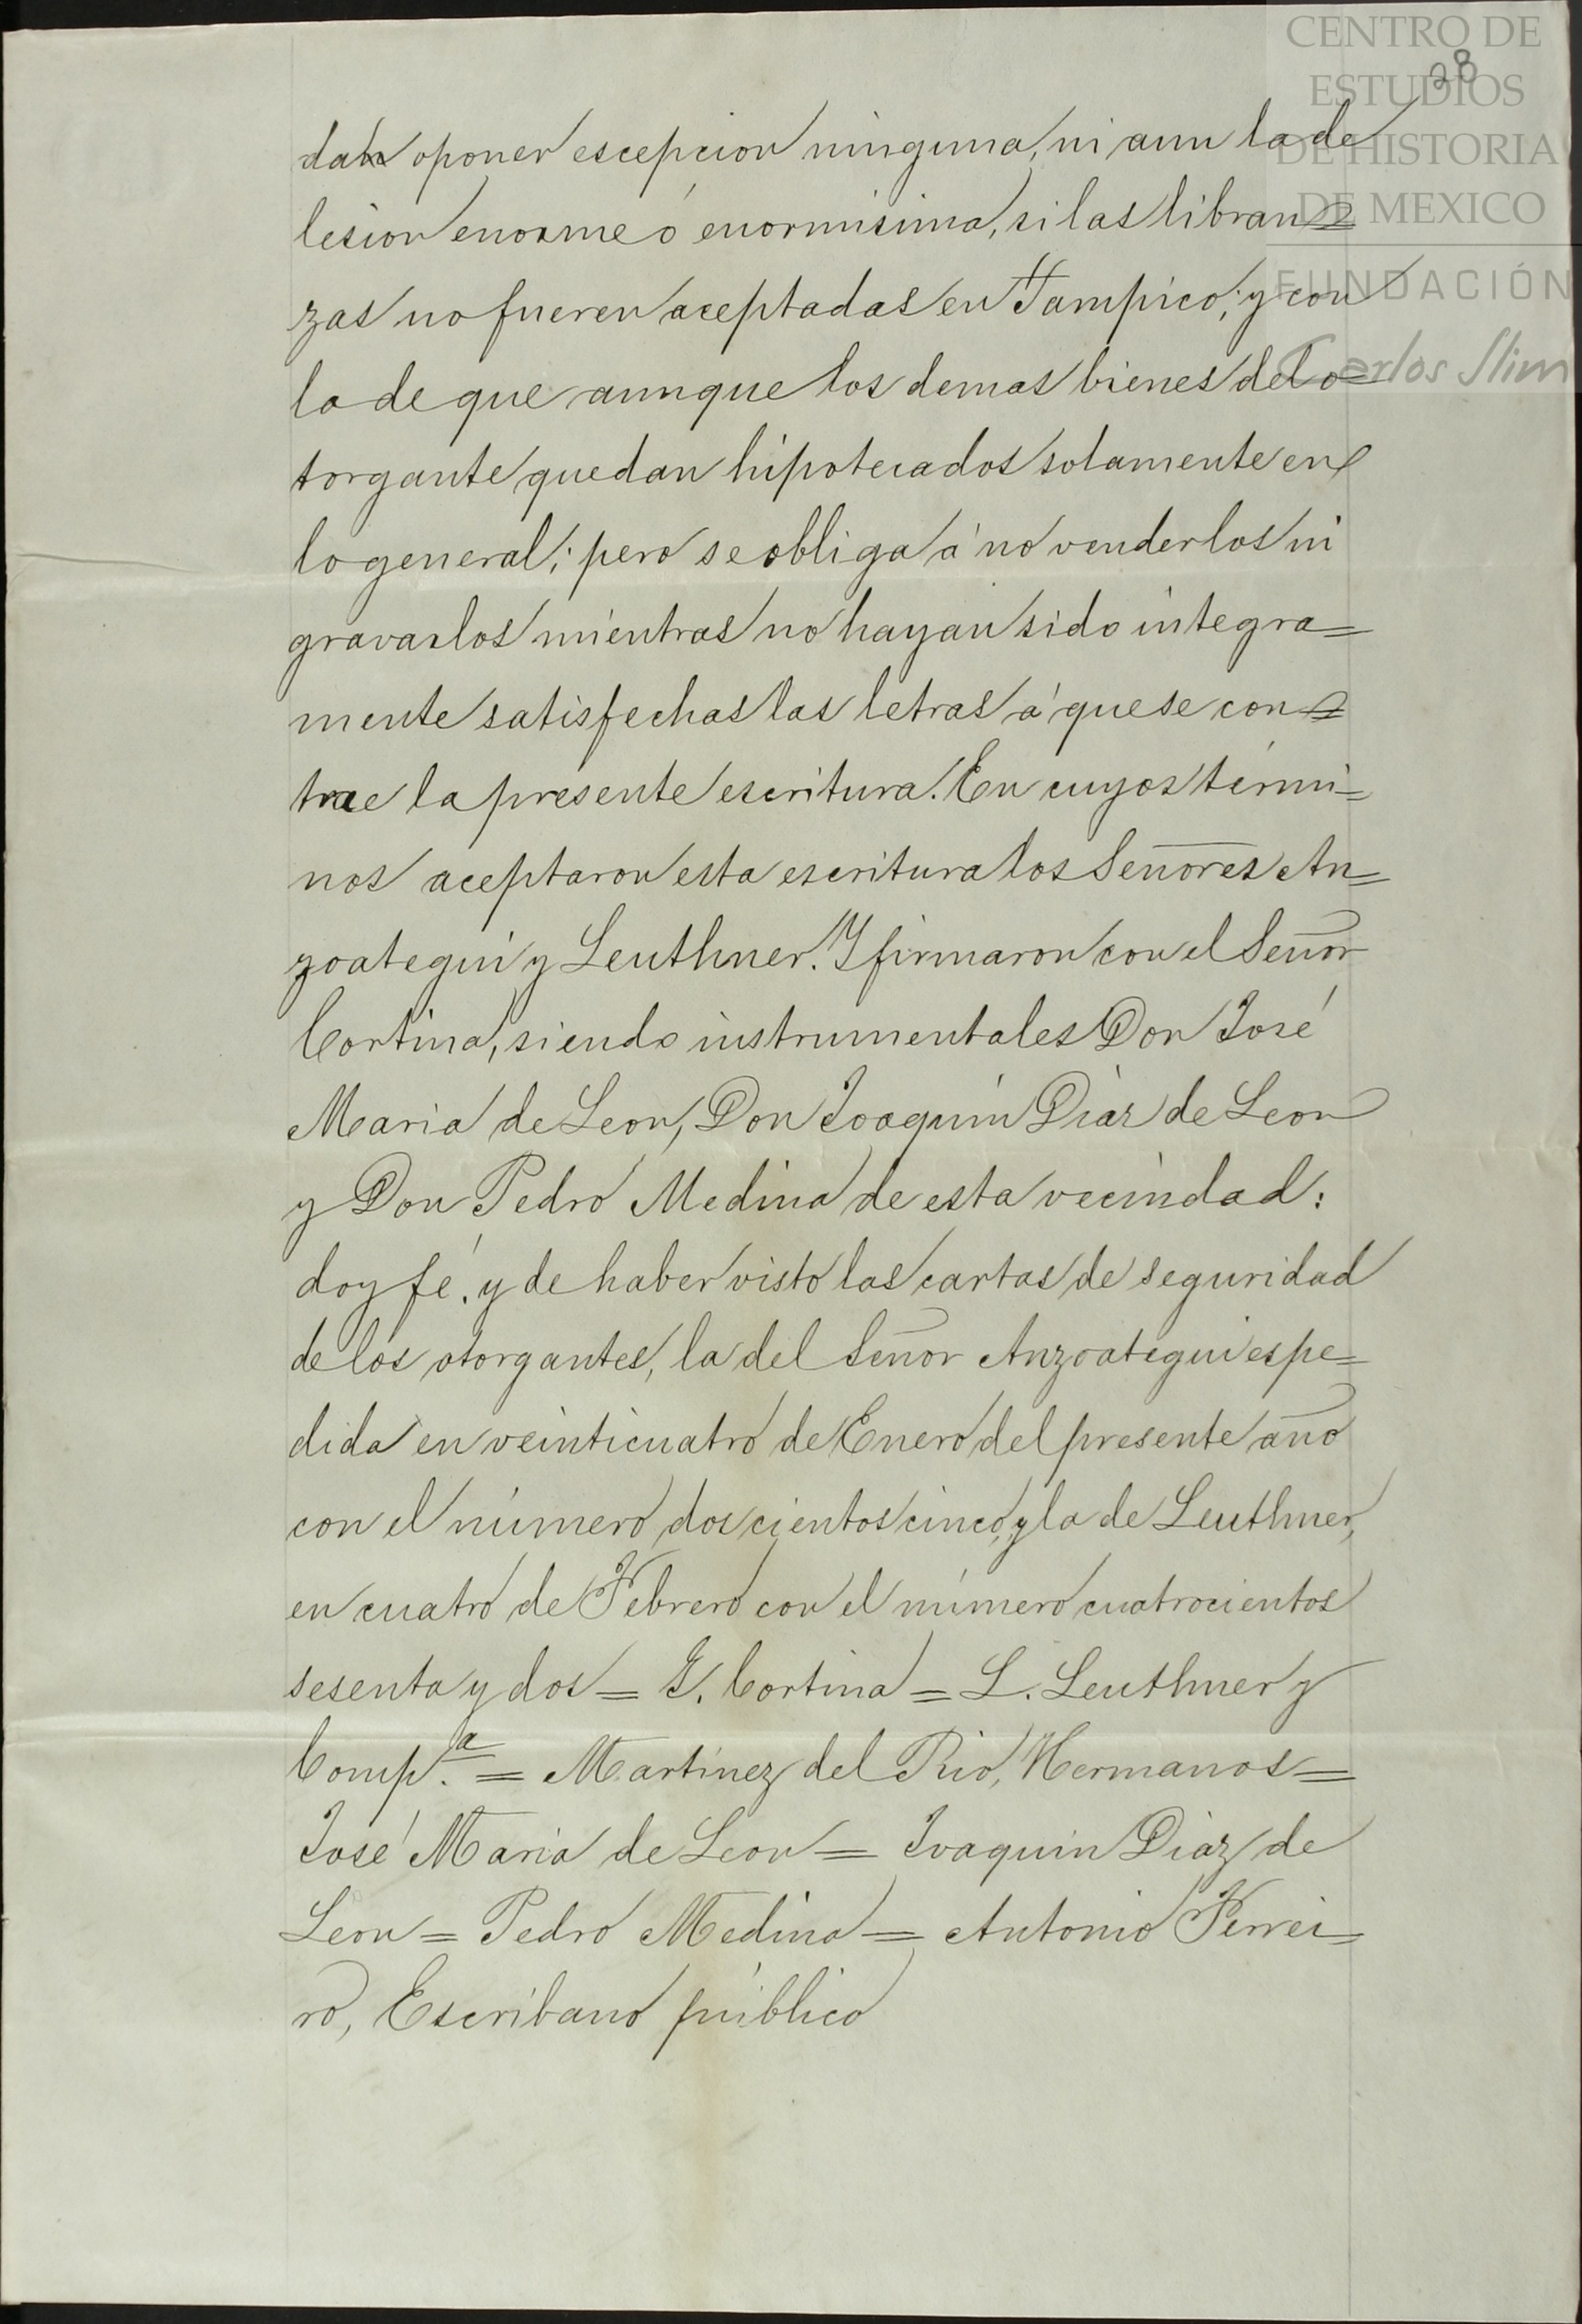 CENTRO DE
ESTUDIOS
DE HISTORIA
DE MEXICO
FUNDACIÓN
Carlos Slim
28
dan oponer escepcion ninguna, ni aun la de
lesion enorme ó enormisima, si las libran=
zas no fueren aceptadas en Tampico; y con
la de que aunque los demas bienes del o=
torgante quedan hipotecados solamente en
lo general; pero se obliga á no venderlos ni
gravarlos mientras no hayan sido integra=
mente satisfechas las letras á que se con=
trae la presente escritura. En cuyos térmi=
nos aceptaron esta escritura los Señores An=
zoategui y Leuthner. Y firmaron con el Señor
Cortina, siendo instrumentales Don José
Maria de Leon, Don Joaquin Diaz de Leon
y Don Pedro Medina de esta vecindad:
doy fé. y de haber visto las cartas de seguridad
de los otorgantes, la del Señor Anzoategui espe=
dida en veinticuatro de Enero del presente año
con el número doscientos cinco, y la de Leuthner,
en cuatro de Febrero con el número cuatrocientos
sesenta y dos = G. Cortina = L. Leuthner y
Comp.ª = Martinez del Rio, Hermanos =
José Maria de Leon = Joaquin Diaz de
Leon = Pedro Medina = Antonio Ferrei=
ro, Escribano público